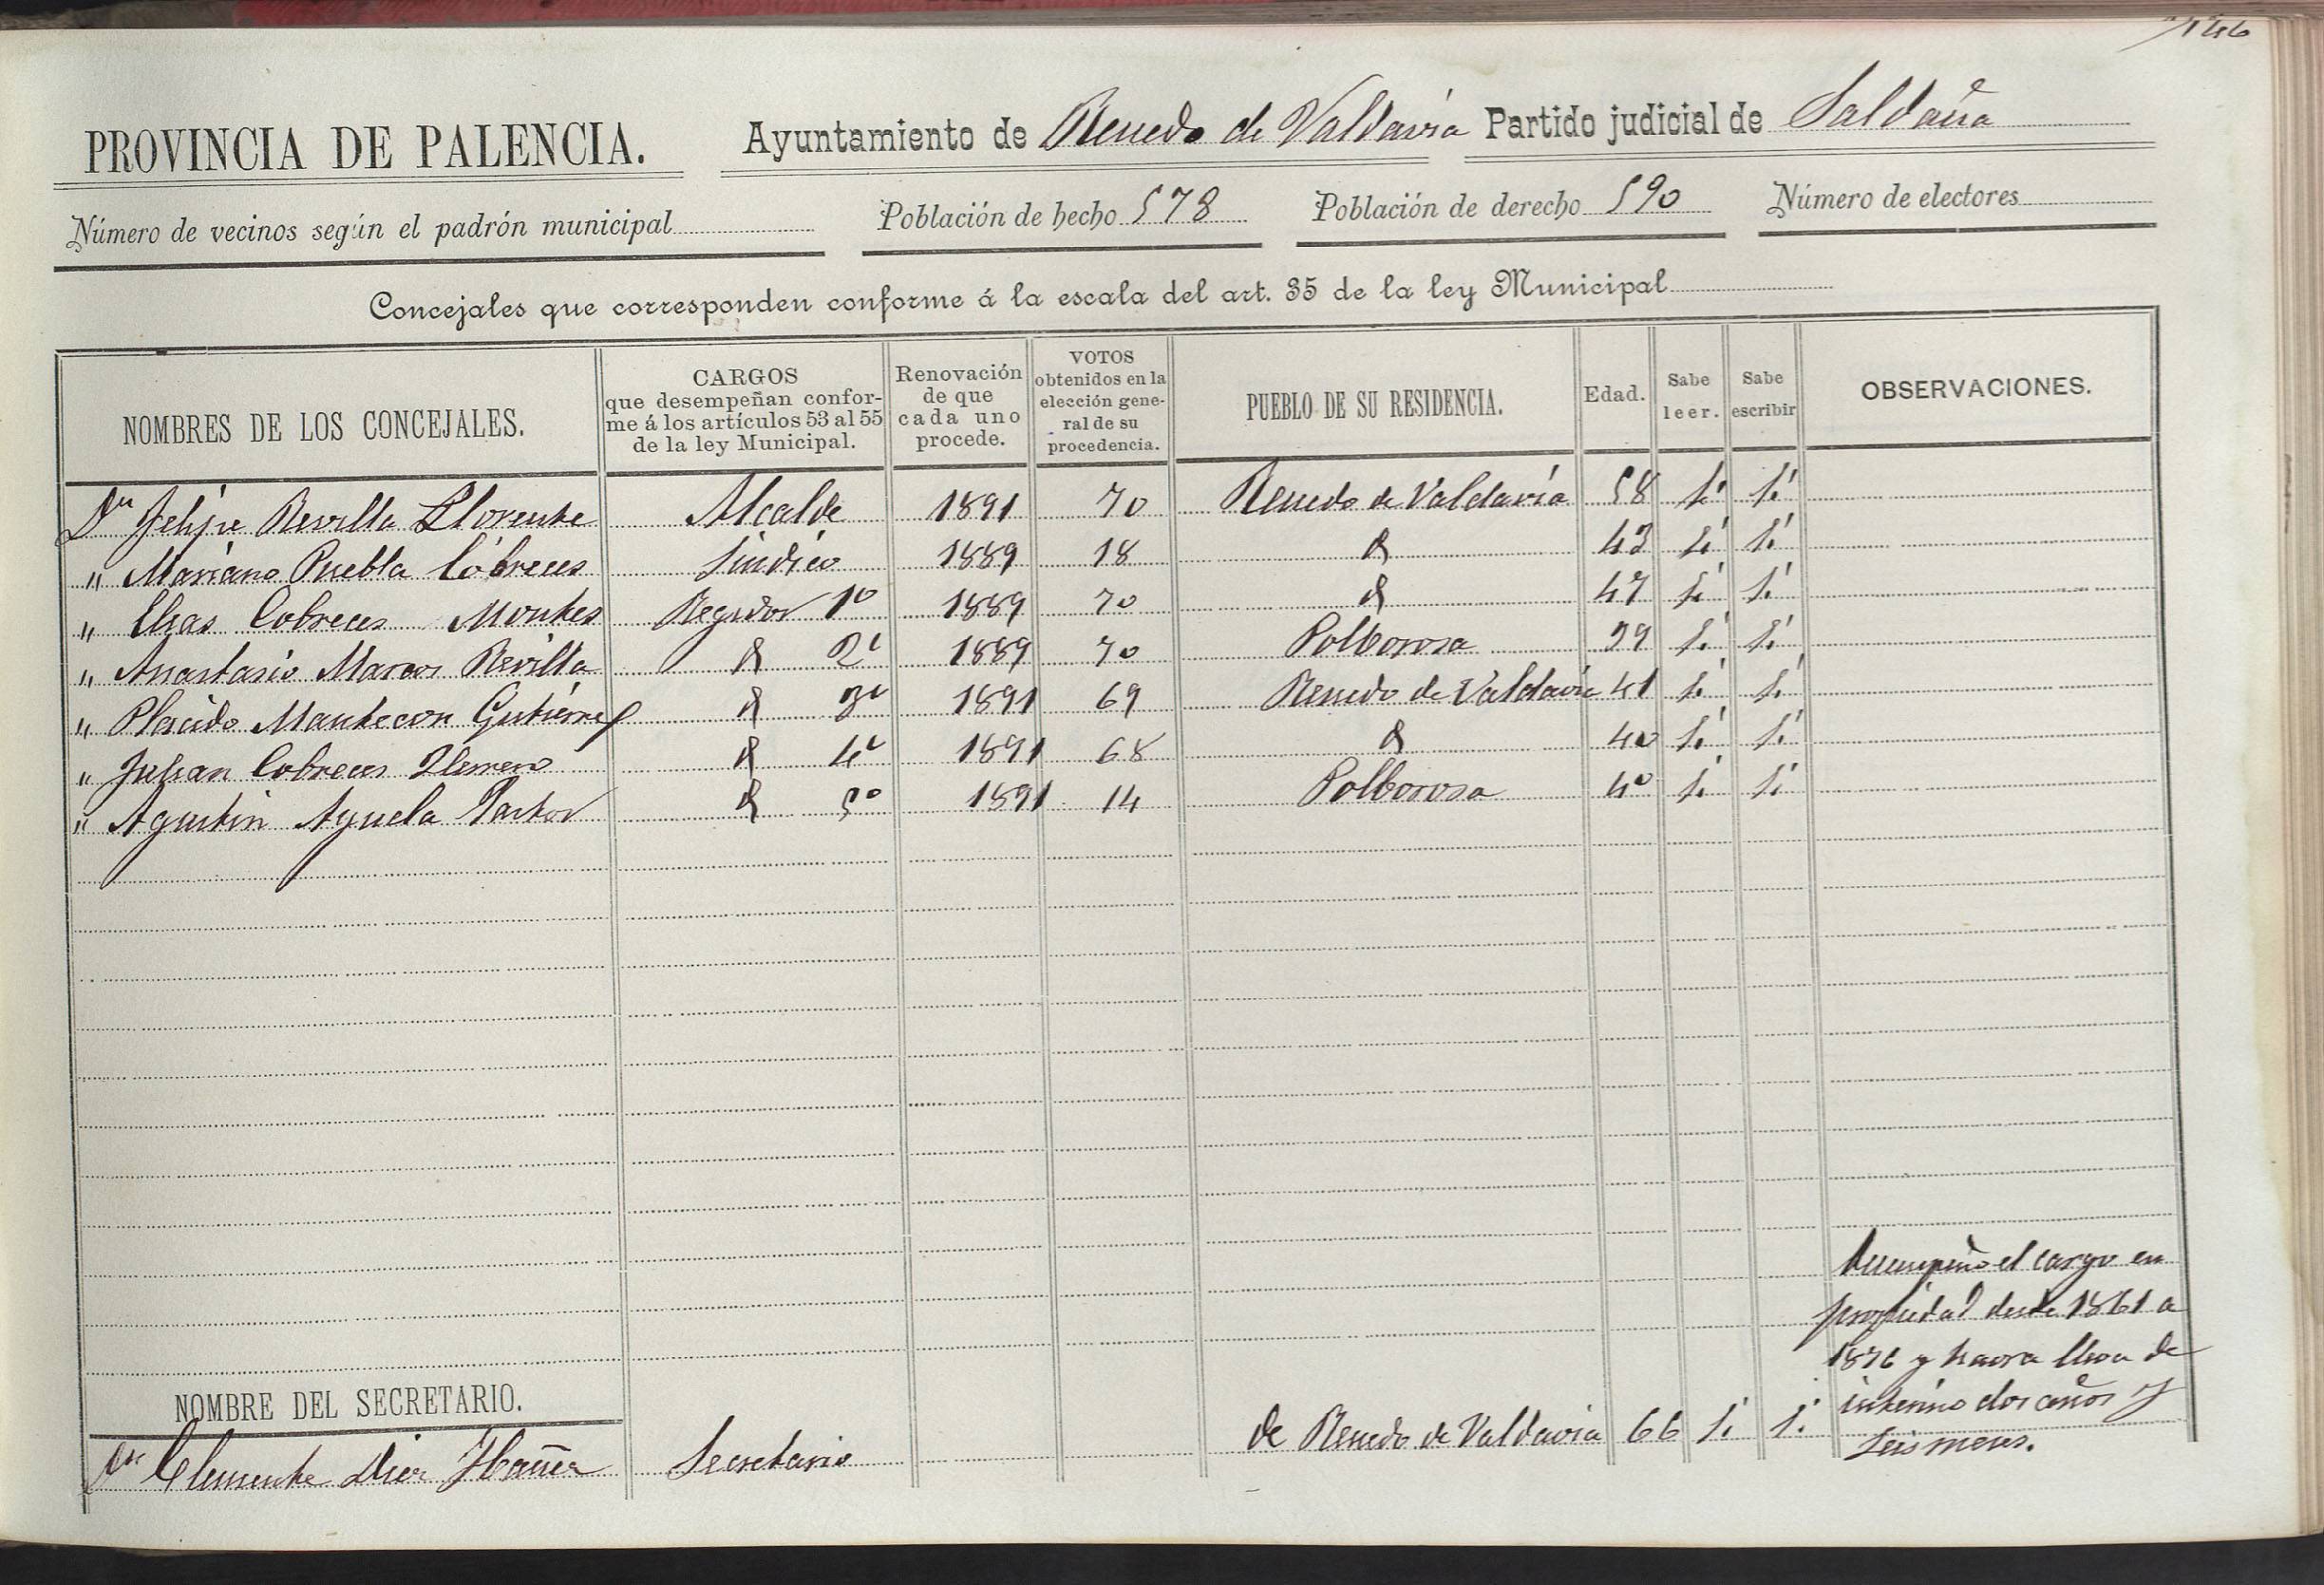 146
PROVINCIA DE PALENCIA. Ayuntamiento de Renedo de Valdavia Partido judicial de Saldaña
Número de vecinos según el padrón municipal Población de hecho 578 Población de derecho 590 Número de electores
Concejales que corresponden conforme á la escala del art. 35 de la ley Municipal
NOMBRES DE LOS CONCEJALES. CARGOS que desempeñan conforme á los artículos 53 al 55 de la ley Municipal. Renovación de que cada uno procede. VOTOS obtenidos en la elección general de su procedencia. PUEBLO DE SU RESIDENCIA. Edad. Sabe leer. Sabe escribir OBSERVACIONES.
Dn Felipe Revilla Llorente Alcalde 1891 70 Renedo de Valdavia 58 Sí Sí
" Mariano Puebla Cóbreces Síndico 1889 18 & 43 Sí Sí
" Elias Cobreces Montes Regidor 1º 1889 70 & 47 Sí Sí
" Anastasio Marcos Revilla & 2º 1889 70 Polvorosa 39 Sí Sí
" Placido Mantecon Gutiérrez & 3º 1891 69 Renedo de Valdavia 41 Sí Sí
" Julian Cobreces & 4º 1891 68 & 40 Sí Sí
" Agustin Ayuela Pastor & 5º 1891 14 Polvorosa 40 Sí Sí
Desempeño el cargo en
propiedad desde 1861 a
1876 y haora lleva de
interino dos años y
seis meses.
NOMBRE DEL SECRETARIO.
Dn Clemente Diez Ibañez Secretario de Renedo de Valdavia 66 Sí Sí